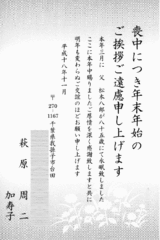 喪中につき年末年始の
ご挨拶ご遠慮申し上げます
本年三月に 父 松本八郎が八十五歳にて永眠致しました
ここに本年中賜りましたご厚情を深く感謝致しますと共に
明年も変わらぬご交誼のほどお願い申し上げます
平成十八年十一月
〒270-1167
千葉県我孫子市台田
萩原 周二
加寿子